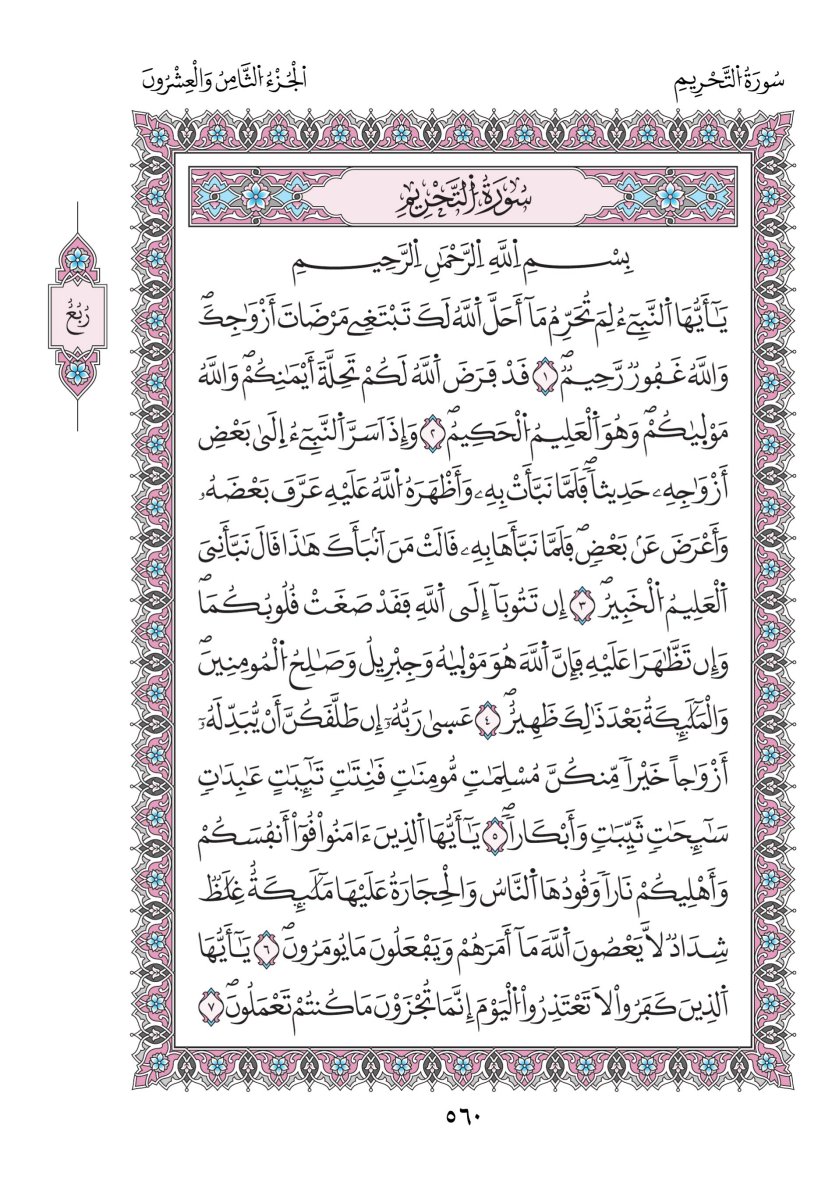 سُورَةُ اُلتَّحْرِيمِ
اُلْجُزْءُ اُلثَّامِنُ وَالْعِشْرُونَ
سُورَةُ اُلتَّحْرِيمِ
رُبُعُ
بِسْمِ اِللَّهِ اِلرَّحْمَٰنِ اِلرَّحِيمِ
يَٰٓأَيُّهَا اَلنَّبِےٓءُ لِمَ تُحَرِّمُ مَآ أَحَلَّ اَللَّهُ لَكَ تَبْتَغِے مَرْضَاتَ أَزْوَٰجِكَۖ
وَاللَّهُ غَفُورٞ رَّحِيمٞۖ ١ قَدْ فَرَضَ اَللَّهُ لَكُمْ تَحِلَّةَ أَيْمَٰنِكُمْۖ وَاللَّهُ
مَوْل۪يٰكُمْۖ وَهُوَ اَلْعَلِيمُ اُلْحَكِيمُۖ ٢ وَإِذَ اَسَرَّ اَلنَّبِےٓءُ اِلَىٰ بَعْضِ
أَزْوَٰجِهِۦ حَدِيثاٗۖ فَلَمَّا نَبَّأَتْ بِهِۦ وَأَظْهَرَهُ اُللَّهُ عَلَيْهِ عَرَّفَ بَعْضَهُۥ
وَأَعْرَضَ عَنۢ بَعْضٖۖ فَلَمَّا نَبَّأَهَا بِهِۦ قَالَتْ مَنَ اَنۢبَأَكَ هَٰذَا قَالَ نَبَّأَنِيَ
اَلْعَلِيمُ اُلْخَبِيرُۖ ٣ إِن تَتُوبَآ إِلَى اَللَّهِ فَقَدْ صَغَتْ قُلُوبُكُمَاۖ
وَإِن تَظَّٰهَرَا عَلَيْهِ فَإِنَّ اَللَّهَ هُوَ مَوْل۪يٰهُ وَجِبْرِيلُ وَصَٰلِحُ اُلْمُومِنِينَۖ
وَالْمَلَٰٓئِكَةُ بَعْدَ ذَٰلِكَ ظَهِيرٌۖ ٤ عَس۪يٰ رَبُّهُۥٓ إِن طَلَّقَكُنَّ أَنْ يُّبَدِّلَهُۥٓ
أَزْوَٰجاً خَيْراٗ مِّنكُنَّ مُسْلِمَٰتٖ مُّومِنَٰتٖ قَٰنِتَٰتٖ تَٰٓئِبَٰتٍ عَٰبِدَٰتٖ
سَٰٓئِحَٰتٖ ثَيِّبَٰتٖ وَأَبْكَاراٗۖ ٥ يَٰٓأَيُّهَا اَلذِينَ ءَامَنُواْ قُوٓاْ أَنفُسَكُمْ
وَأَهْلِيكُمْ نَاراٗ وَقُودُهَا اَلنَّاسُ وَالْحِجَارَةُ عَلَيْهَا مَلَٰٓئِكَةٌ غِلَٰظٞ
شِدَادٞ لَّا يَعْصُونَ اَللَّهَ مَآ أَمَرَهُمْ وَيَفْعَلُونَ مَا يُومَرُونَۖ ٦ يَٰٓأَيُّهَا
اَلذِينَ كَفَرُواْ لَا تَعْتَذِرُواْ اُلْيَوْمَ إِنَّمَا تُجْزَوْنَ مَا كُنتُمْ تَعْمَلُونَۖ ٧
٥٦٠